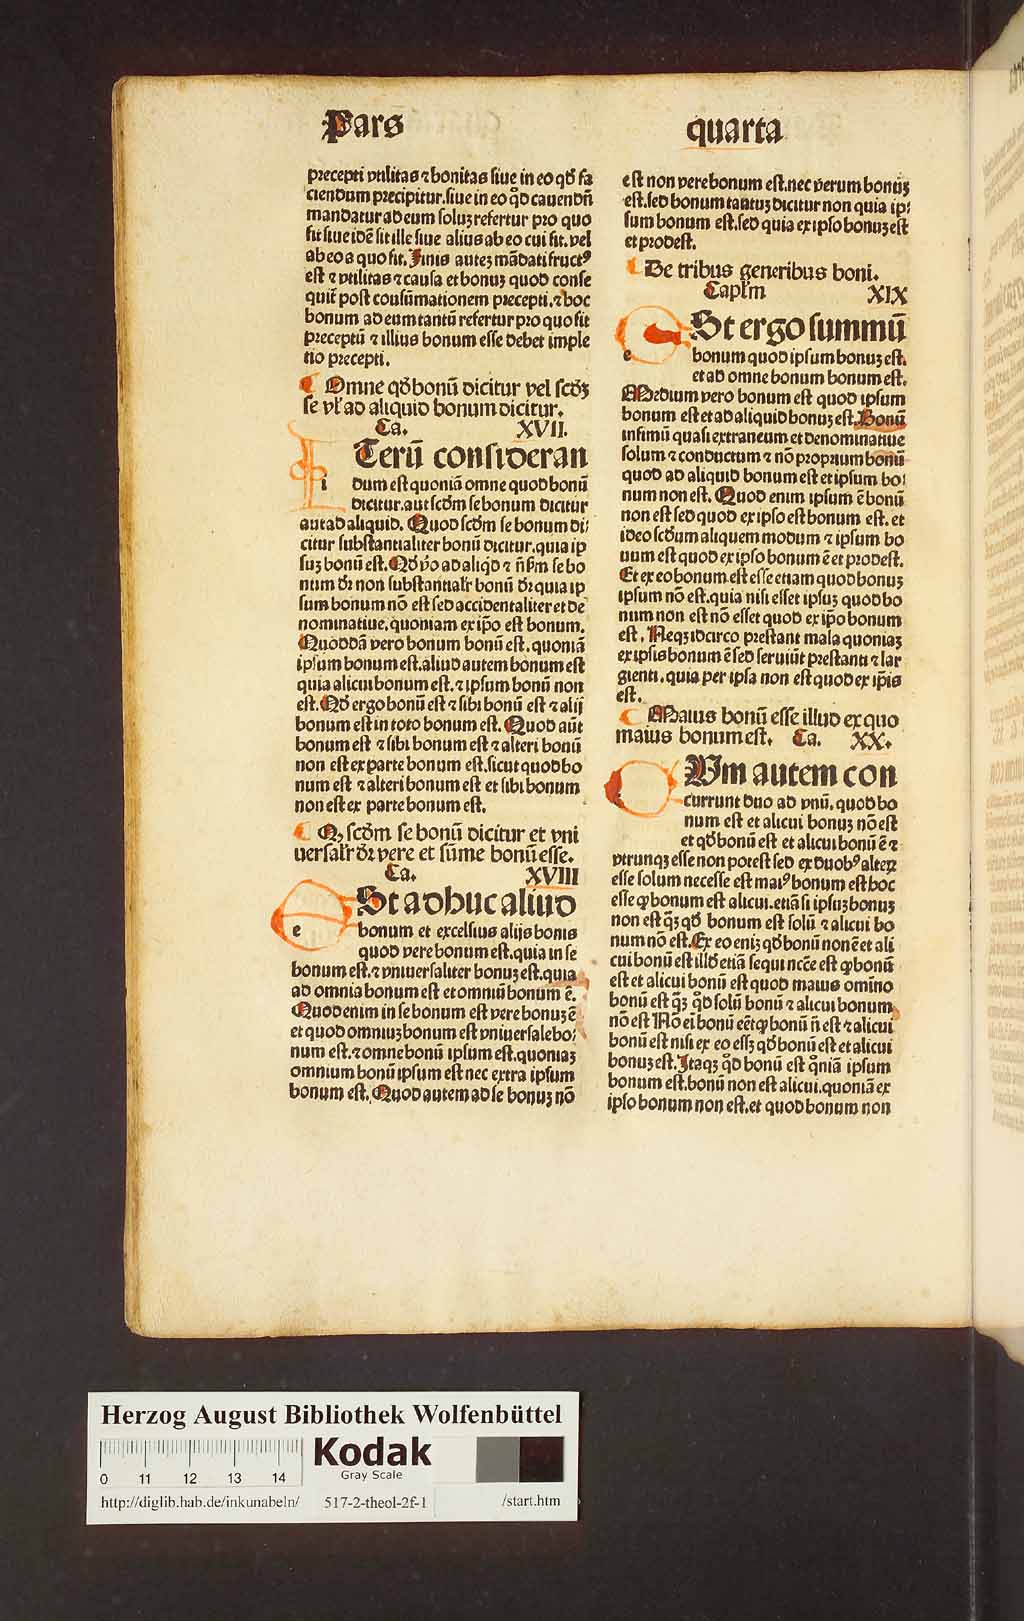 Pars
quarta
precepti vtilitas ⁊ bonitas siue in eo qđ fa
ciendum precipitur.siue in eo qͦd cauendū
mandatur ad eum soluꝫ refertur pro quo
fit siue idē sit ille siue alius ab eo cui fit.vel
ab eo a quo fit.Finis auteꝫ mādati fructꝰ
est ⁊ vtilitas ⁊ causa et bonuꝫ quod conse
quit̄ post cōsūmationem precepti.⁊ hoc
bonum ad eum tantū refertur pro quo fit
preceptū ⁊ illius bonum esse debet imple
tio precepti.
Omne qđ bonū dicitur vel scđꝫ
se vl' ad aliquid bonum dicitur.
Ca. XVII.
i Terū consideran
dum est quoniā omne quod bonū
dicitur.aut scđm se bonum dicitur
aut ad aliquid. Quod scđm se bonum di⸗
citur substantialiter bonū dicitur.quia ip
suꝫ bonū est. Qđ ṽo ad aliqđ ⁊ ñ scđm se bo
num dr̄ non substantialr̄ bonū dr̄ quia ip
sum bonum nō est sed accidentaliter et de
nominatiue. quoniam ex ip̄o est bonum.
Quoddā vero bonum bonū est. quoniā
ipsum bonum est.aliud autem bonum est
quia alicui bonum est. ⁊ ipsum bonū non
est. Qđ ergo bonū est ⁊ sibi bonū est ⁊ alij
bonum est in toto bonum est. Quod aūt
bonum est ⁊ sibi bonum est ⁊ alteri bonū
non est ex parte bonum est.sicut quod bo
num est ⁊ alteri bonum est et sibi bonum
non est ex parte bonum est.
Qꝫ scđm se bonū dicitur et vni
uersalr̄ dr̄ vere et sūme bonū esse.
Ca. XVIII
e St adhuc aliud
bonum et excelsius alijs bonis
quod vere bonum est. quia in se
bonum est.⁊ vniuersaliter bonuꝫ est.quia
ad omnia bonum est et omniū bonum ē.
Quod enim in se bonum est vere bonuꝫ ē
et quod omniuꝫ bonum est vniuersale bo⸗
num est.⁊ omne bonū ipsum est.quoniaꝫ
omnium bonū ipsum est nec extra ipsum
bonum est. Quod autem ad se bonuꝫ nō
est non vere bonum est.nec verum bonuꝫ
est.sed bonum tantuꝫ dicitur non quia ip⸗
sum bonum est.sed quia ex ipso bonuꝫ est
et prodest.
De tribus generibus boni.
Capl'm XIX
e St ergo summū
bonum quod ipsum bonuꝫ est.
et ad omne bonum bonum est.
Medium vero bonum est quod ipsum
bonum est et ad aliquid bonuꝫ est. Bonū
infimū quasi extraneum et denominatiue
solum ⁊ conductum ⁊ nō proprium bonū
quod ad aliquid bonum est et ipsum bo⸗
num non est. Quod enim ipsum ē bonū
non est sed quod ex ipso est bonum est. et
ideo scđum aliquem modum ⁊ ipsum bo
num est quod ex ipso bonum ē et prodest.
Et ex eo bonum est esse etiam quod bonuꝫ
ipsum nō est.quia nisi esset ipsuꝫ quod bo
num non est nō esset quod ex ip̄o bonum
est. Neqꝫ idcirco prestant mala quoniaꝫ
ex ipsis bonum ē sed seruiūt prestanti ⁊ lar
gienti. quia per ipsa non est quod ex ip̄is
est.
Maius bonū esse illud ex quo
maius bonum est. Ca. XX.
Vm autem con
currunt duo ad vnū. quod bo
num est et alicui bonuꝫ nō est
et qđ bonū est et alicui bonū ē ⁊
vtrunqꝫ esse non potest sed ex duobꝰ alteꝝ
esse solum necesse est maiꝰ bonum est hoc
esse ꝙ bonum est alicui.etiā si ipsuꝫ bonuꝫ
non est q̄ꝫ qđ bonum est solū ⁊ alicui bo
num nō est. Ex eo eniꝫ qđ bonū non ē et ali
cui bonū est illđ etiā sequi ncc̄e est ꝙ bonū
est et alicui bonū est quod maius omīno
bonū est q̄ꝫ qͦd solū bonū ⁊ alicui bonum
nō est Nō ei bonū eēt ꝙ bonū ñ est ⁊ alicui
bonū est nisi ex eo essꝫ qđ bonū est et alicui
bonuꝫ est. Itaqꝫ qͦd bonū est qm̄iā ipsum
bonum est.bonū non est alicui.quoniā ex
ipso bonum non est.et quod bonum non
Herzog August Bibliothek Wolfenbüttel
0 11 12 13 14
Kodak
Gray Scale
http://diglib.hab.de/inkunabeln/ 517-2-theol-2f-1 /start.htm